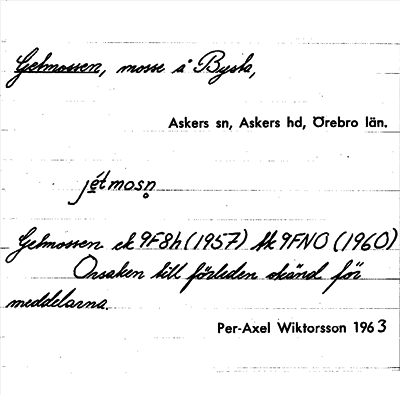 Getmossen, mosse å Bysta,
Askers sn, Askers hd, Örebro län.
jétmosn̥
Getmossen ek 9F8h (1957) tk 9FNO (1960)
Orsaken till förleden okänd för
meddelarna.
Per-Axel Wiktorsson 1963